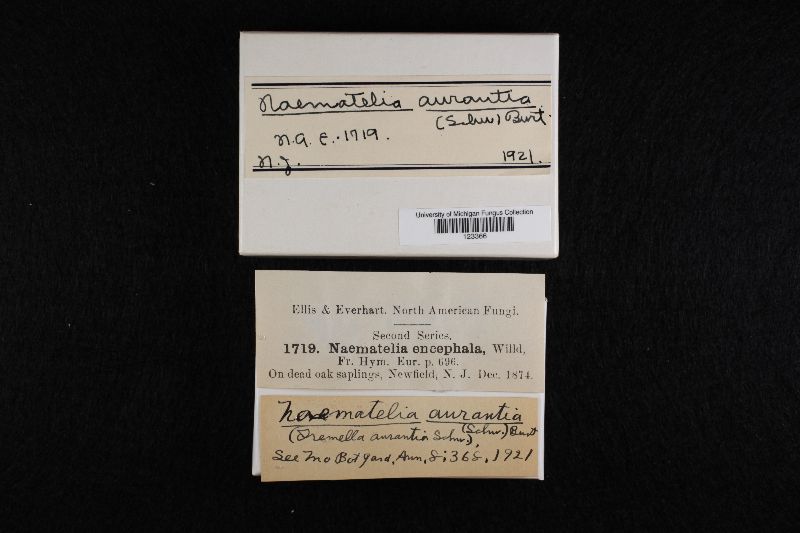 Naematelia aurantia
(Schw.) Burt.
N.A.E.-1719.
N.J. 1921.
University of Michigan Fungus Collection
123366
Ellis & Everhart. North American Fungi.
Second Series.
1719. Naematelia encephala, Willd,
Fr. Hym. Eur. p. 696.
On dead oak saplings, Newfield, N. J. Dec. 1874.
Naematelia aurantia
(Schw.) Burt
(Tremella aurantia Schw.)
See Mo Bot Gard, Ann, 8:368, 1921